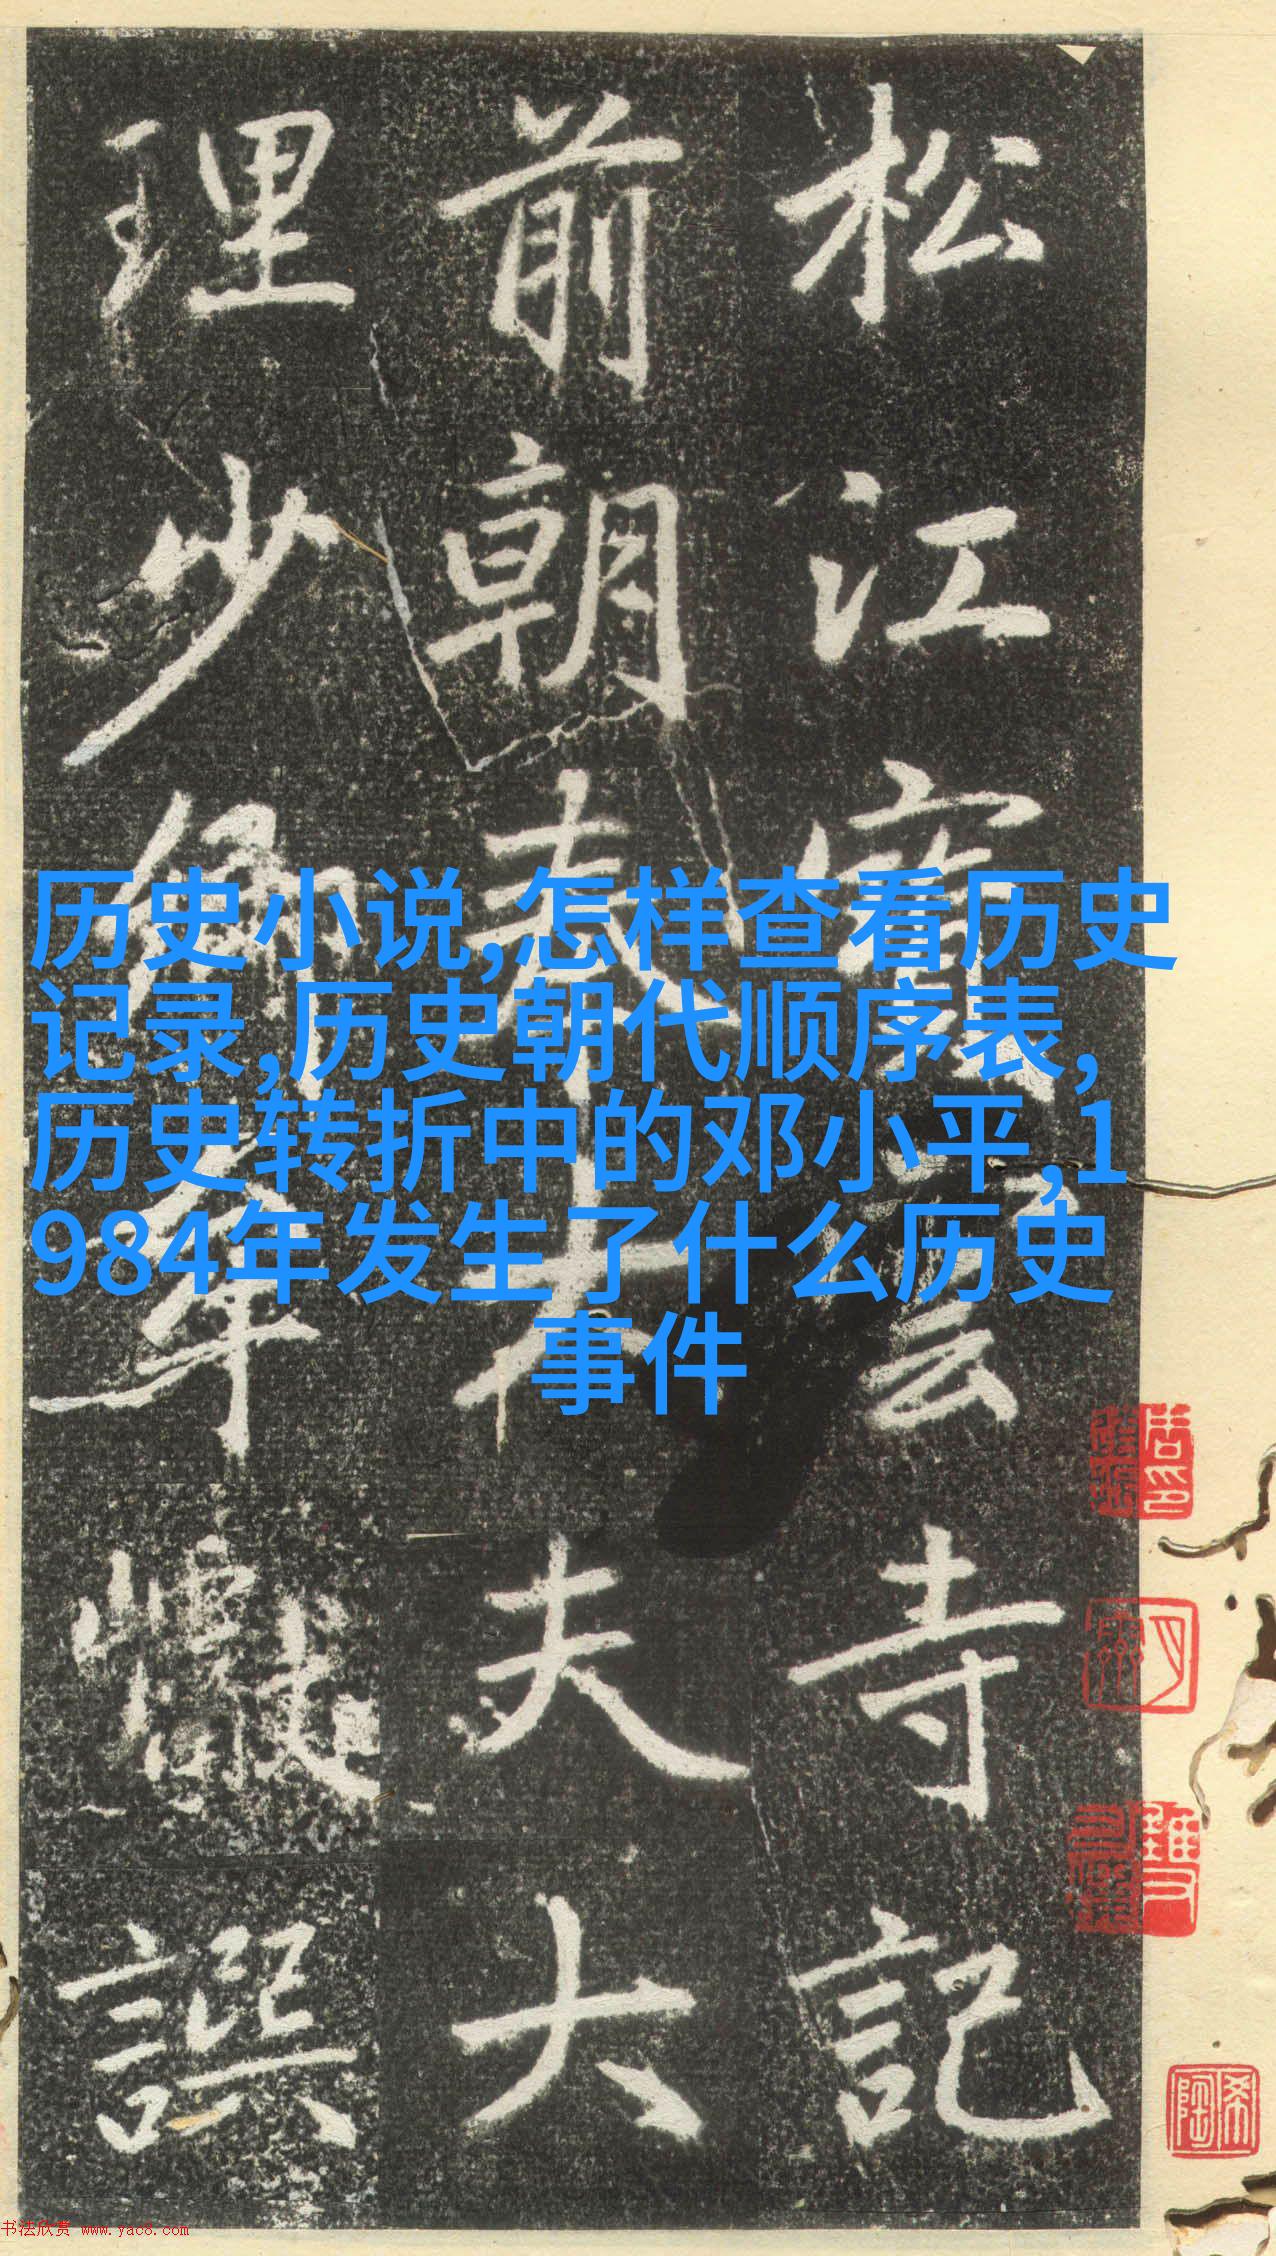 松江寶雲寺記
前朝奉大夫大
理少卿牟譔
历史小说,怎样查看历史
记录,历史朝代顺序表,
历史转折中的邓小平,1
984年发生了什么历史
事件
希陶
书法欣赏 www.yac8.com